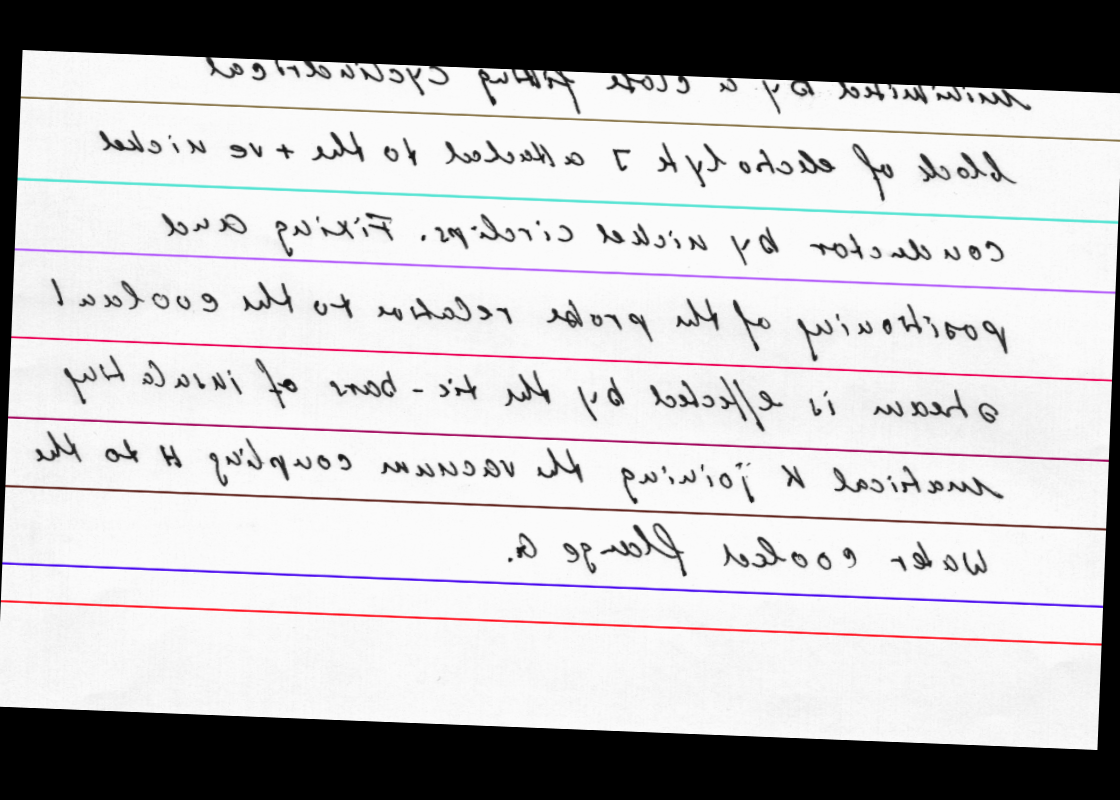 minimised by a close fitting cyclindrical
block of electrolyte J attached to the +ve nickel
conductor by nickel circlips. Fixing and
positioning of the probe relative to the coolant
stream is effected by the tie-bars of insulating
matrical K joining the vacuum coupling H to the
water cooled flange G.